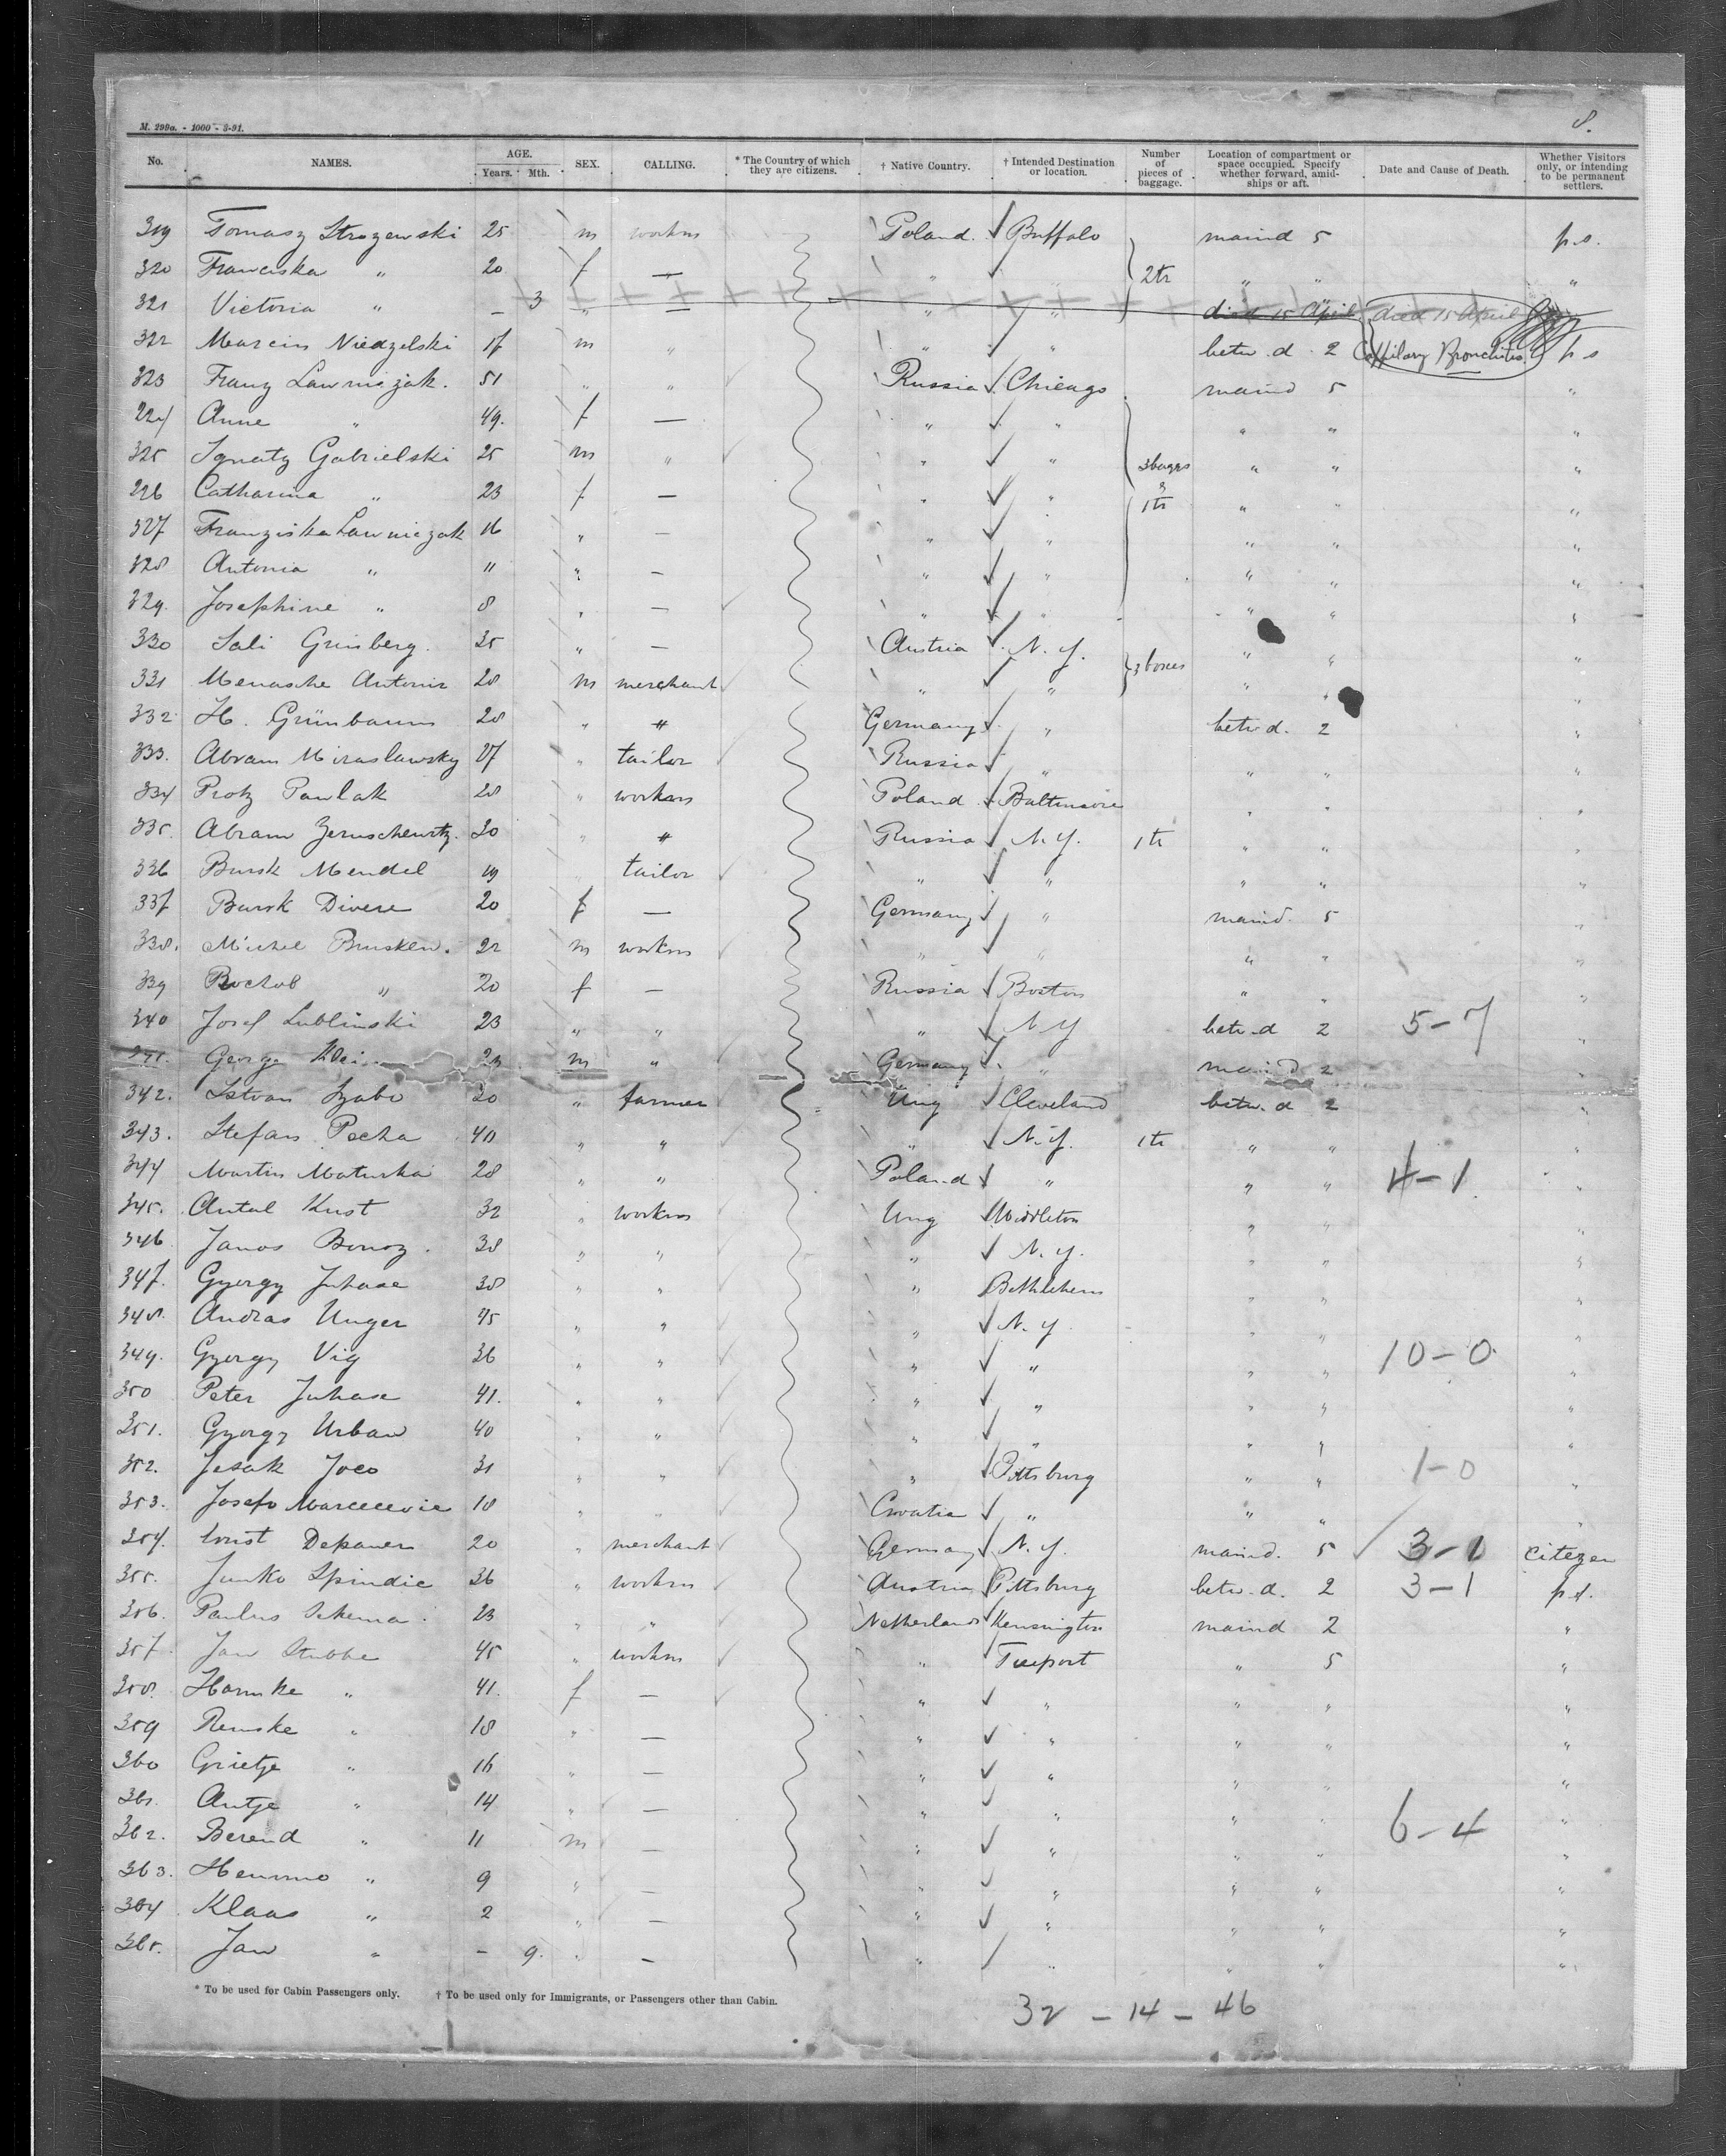 8.
M. 299a. - 1000 - 3-91.
No. NAMES. AGE. Years. Mth. SEX. CALLING. * The Country of which they are citizens. † Native Country. † Intended Destination or location. Number of pieces of baggage. Location of compartment or space occupied. Specify whether forward, amidships or aft. Date and Cause of Death. Whether Visitors only, or intending to be permanent settlers.
319 Tomasz Strozewski 25 m workm Poland. Buffalo maind 5 p.s.
320 Franciska " 20 f — " " 2tr " " "
321 Victoria " — 3 " — " " died 15 April died 15 April
322 Marcin Niedzelski 17 m " " " betw. d. 2 Capillary Bronchitis p s
323 Franz Lawniczak. 51 " " Russia Chicago maind 5 "
324 Anne " 49. f — " " " " "
325 Ignatz Gabrielski 25 m " " " 3 bags " " "
326 Catharina " 23 f — " " & 1tr " " "
327 Franziska Lawniczak 16 " — " " " " "
328 Antonia " 11 " — " " " " "
329. Josephine " 8 " — " " " " "
330 Sali Grinberg. 35 " — Austria N.Y. 3 boxes " " "
331 Menasche Antonir 28 m merchant " " " " "
332 H. Grünbaum 28 " " Germany " betw. d. 2 "
333. Abram Miraslawsky 27 " tailor Russia " " " "
334 Protz Pawlak 28 " workm Poland Baltimore " " "
335. Abram Zernschewitz. 30 " " Russia N.Y. 1tr " " "
336 Bursk Mendel 19 " tailor " " " " "
337 Bursk Divere 20 f — Germany " maind. 5 "
338. Michel Brusken. 22 m workm " " " " "
339 Rochel " 20 f — Russia Boston " " "
340 Josef Lublinski 23 " " " N Y betw. d 2 5-7 "
341. Georg Klein 23 m " Germany " maind 2 "
342. Istvan Szabo 30 " farmer Ung Cleveland betw. d 2 "
343. Stefan Pecha 40 " " " N.Y. 1tr " " "
344 Martin Maturka 28 " " Poland " " " 4-1 "
345. Antal Kust 32 " workm Ung Middleton " " "
346 Janos Bonoz. 38 " " " N.Y. " " "
347. Gyorgy Juhase 38 " " " Bethlehem " " "
348. Andras Unger 45 " " " N.Y. " " "
349. Gyorgy Vig 36 " " " " " " 10-0 "
350 Peter Juhase 41. " " " " " " "
351. Gyorgy Urban 40 " " " " " " "
352. Jesak Joco 31 " " " Pittsburg " " 1-0 "
353. Josefo Marcecevic 18 " " Croatia " " " "
354. Ernst Depauer 20 " merchant Germany N.Y. maind. 5 3-1 citezen
355. Junko Spindic 36 " workm Austria Pittsburg betw. d. 2 3-1 p.s.
356. Paulus Sekema. 23 " " Netherlands Kensington maind 2 "
357. Jan Stubbe 45 " workm " Freeport " 5 "
358. Harmke " 41. f — " " " " "
359 Remske " 18 " — " " " " "
360 Grietje " 16 " — " " " " "
361. Antje " 14 " — " " " " "
362. Berend " 11 m — " " " " 6-4 "
363. Hemmo " 9 " — " " " " "
364 Klaas " 2 " — " " " " "
365. Jan " — 9. " — " " " " "
* To be used for Cabin Passengers only. † To be used only for Immigrants, or Passengers other than Cabin.
32 - 14 - 46